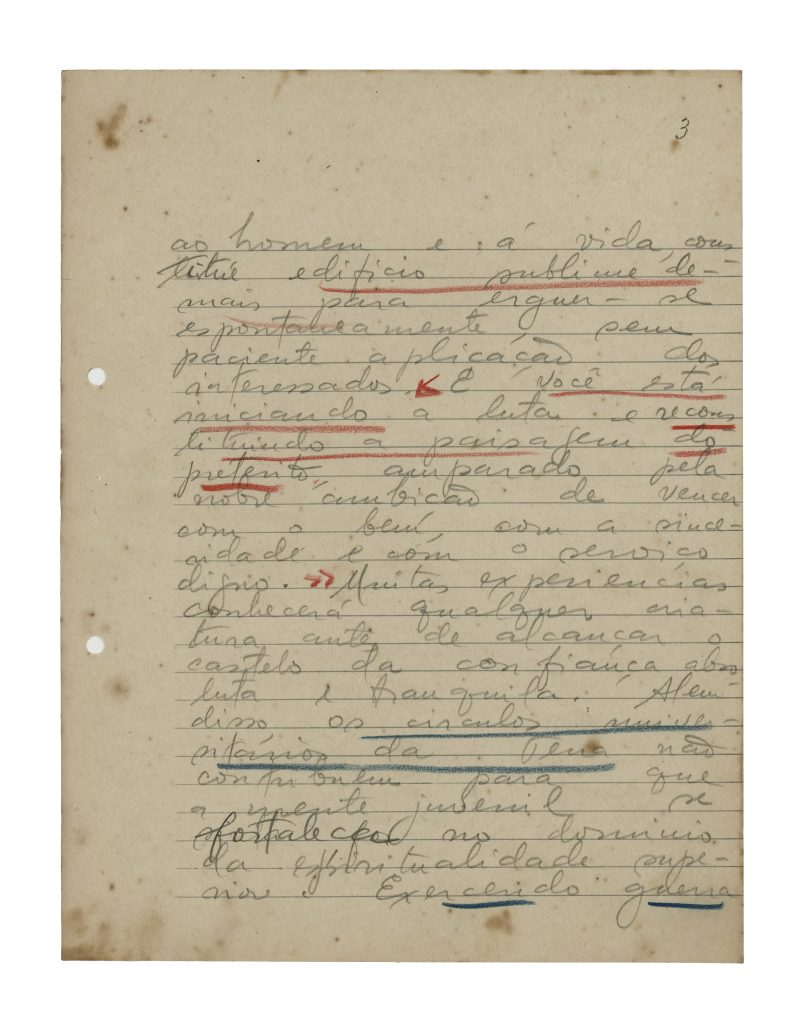 3
ao homem e á vida, cons
titúe edificio sublime de-
mais para erguer-se
espontaneamente, sem
paciente aplicação dos
interessados. E você está
iniciando a luta e recons
tituindo a paisagem do
preterito, amparado pela
nobre ambicão de vencer
com o bem, com a since-
ridade e com o serviço
digno. Muitas experiencias
conhecerá qualquer cria-
tura ante de alcançar o
castelo da confiança abso
luta e tranquila. Alem
disso os circulos univer-
sitários da Terra não
contribuem para que
a mente juvenil se
fortaleça no dominio
da espiritualidade supe-
rior. Exercendo guerra